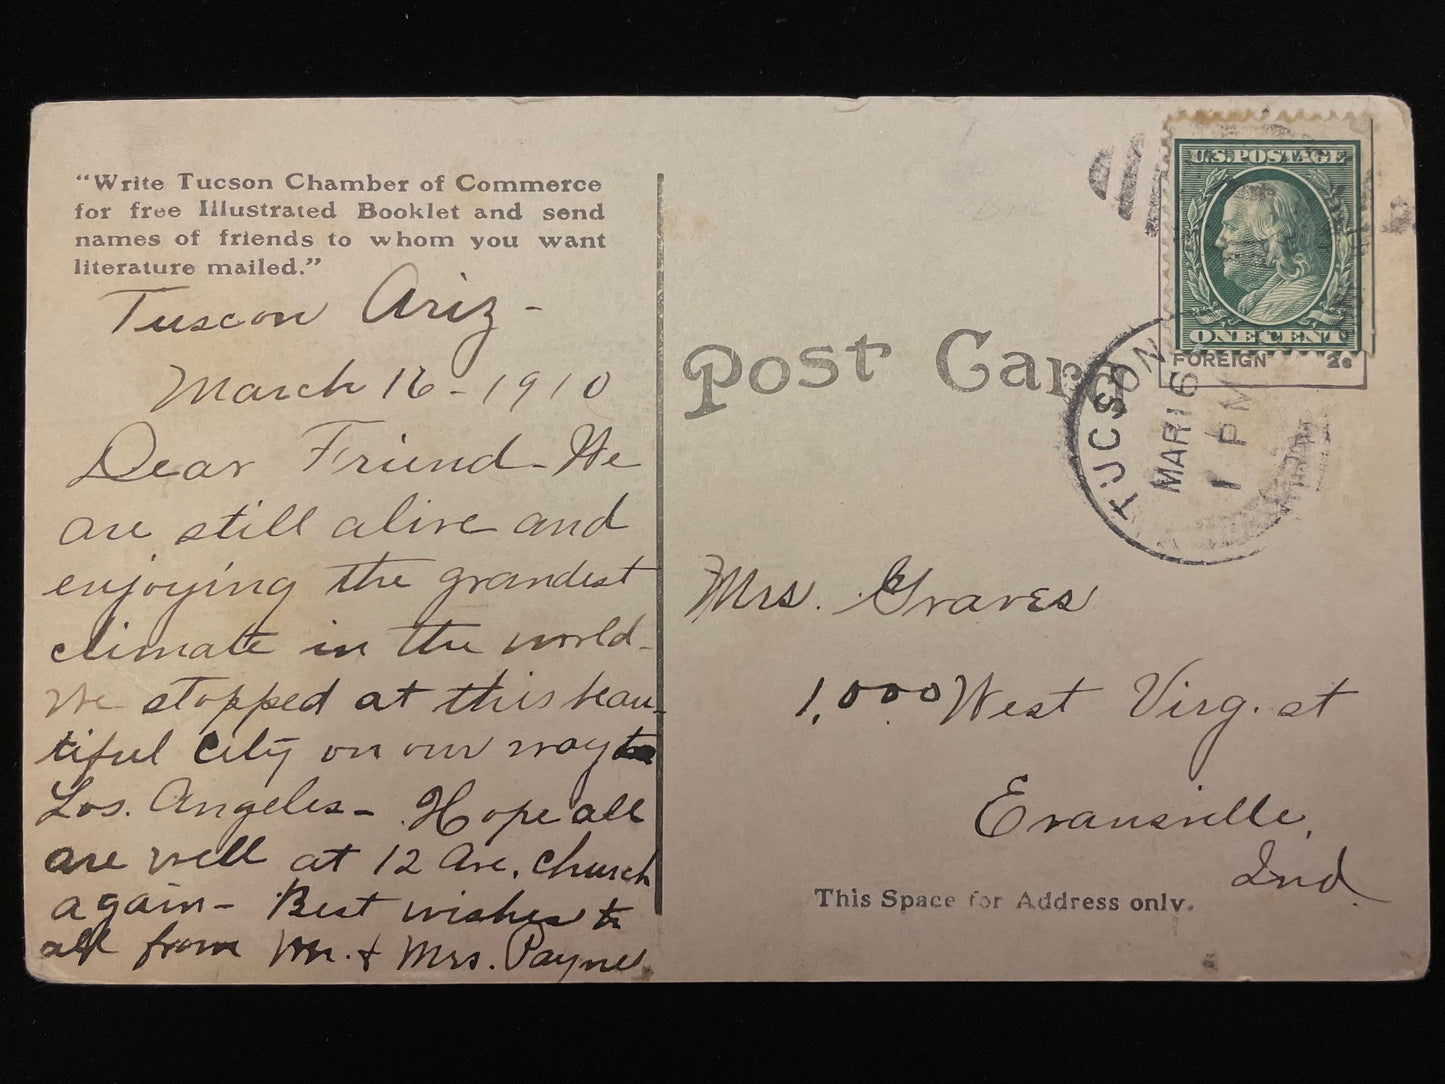 "Write Tucson Chamber of Commerce
for free Illustrated Booklet and send
names of friends to whom you want
literature mailed."
Tuscon Ariz -
March 16 - 1910
Dear Friend - We
are still alive and
enjoying the grandest
climate in the world -
We stopped at this beau-
tiful city on our way to
Los. Angeles - Hope all
are well at 12 Ave. church
again - Best wishes to
all from Mr. & Mrs. Payne
Post Card
U.S. POSTAGE
ONE CENT
FOREIGN 2c
TUCSON
MAR 16
1 PM
Mrs. Graves
1,000 West Virg. st
Evansville,
Ind
This Space for Address only.